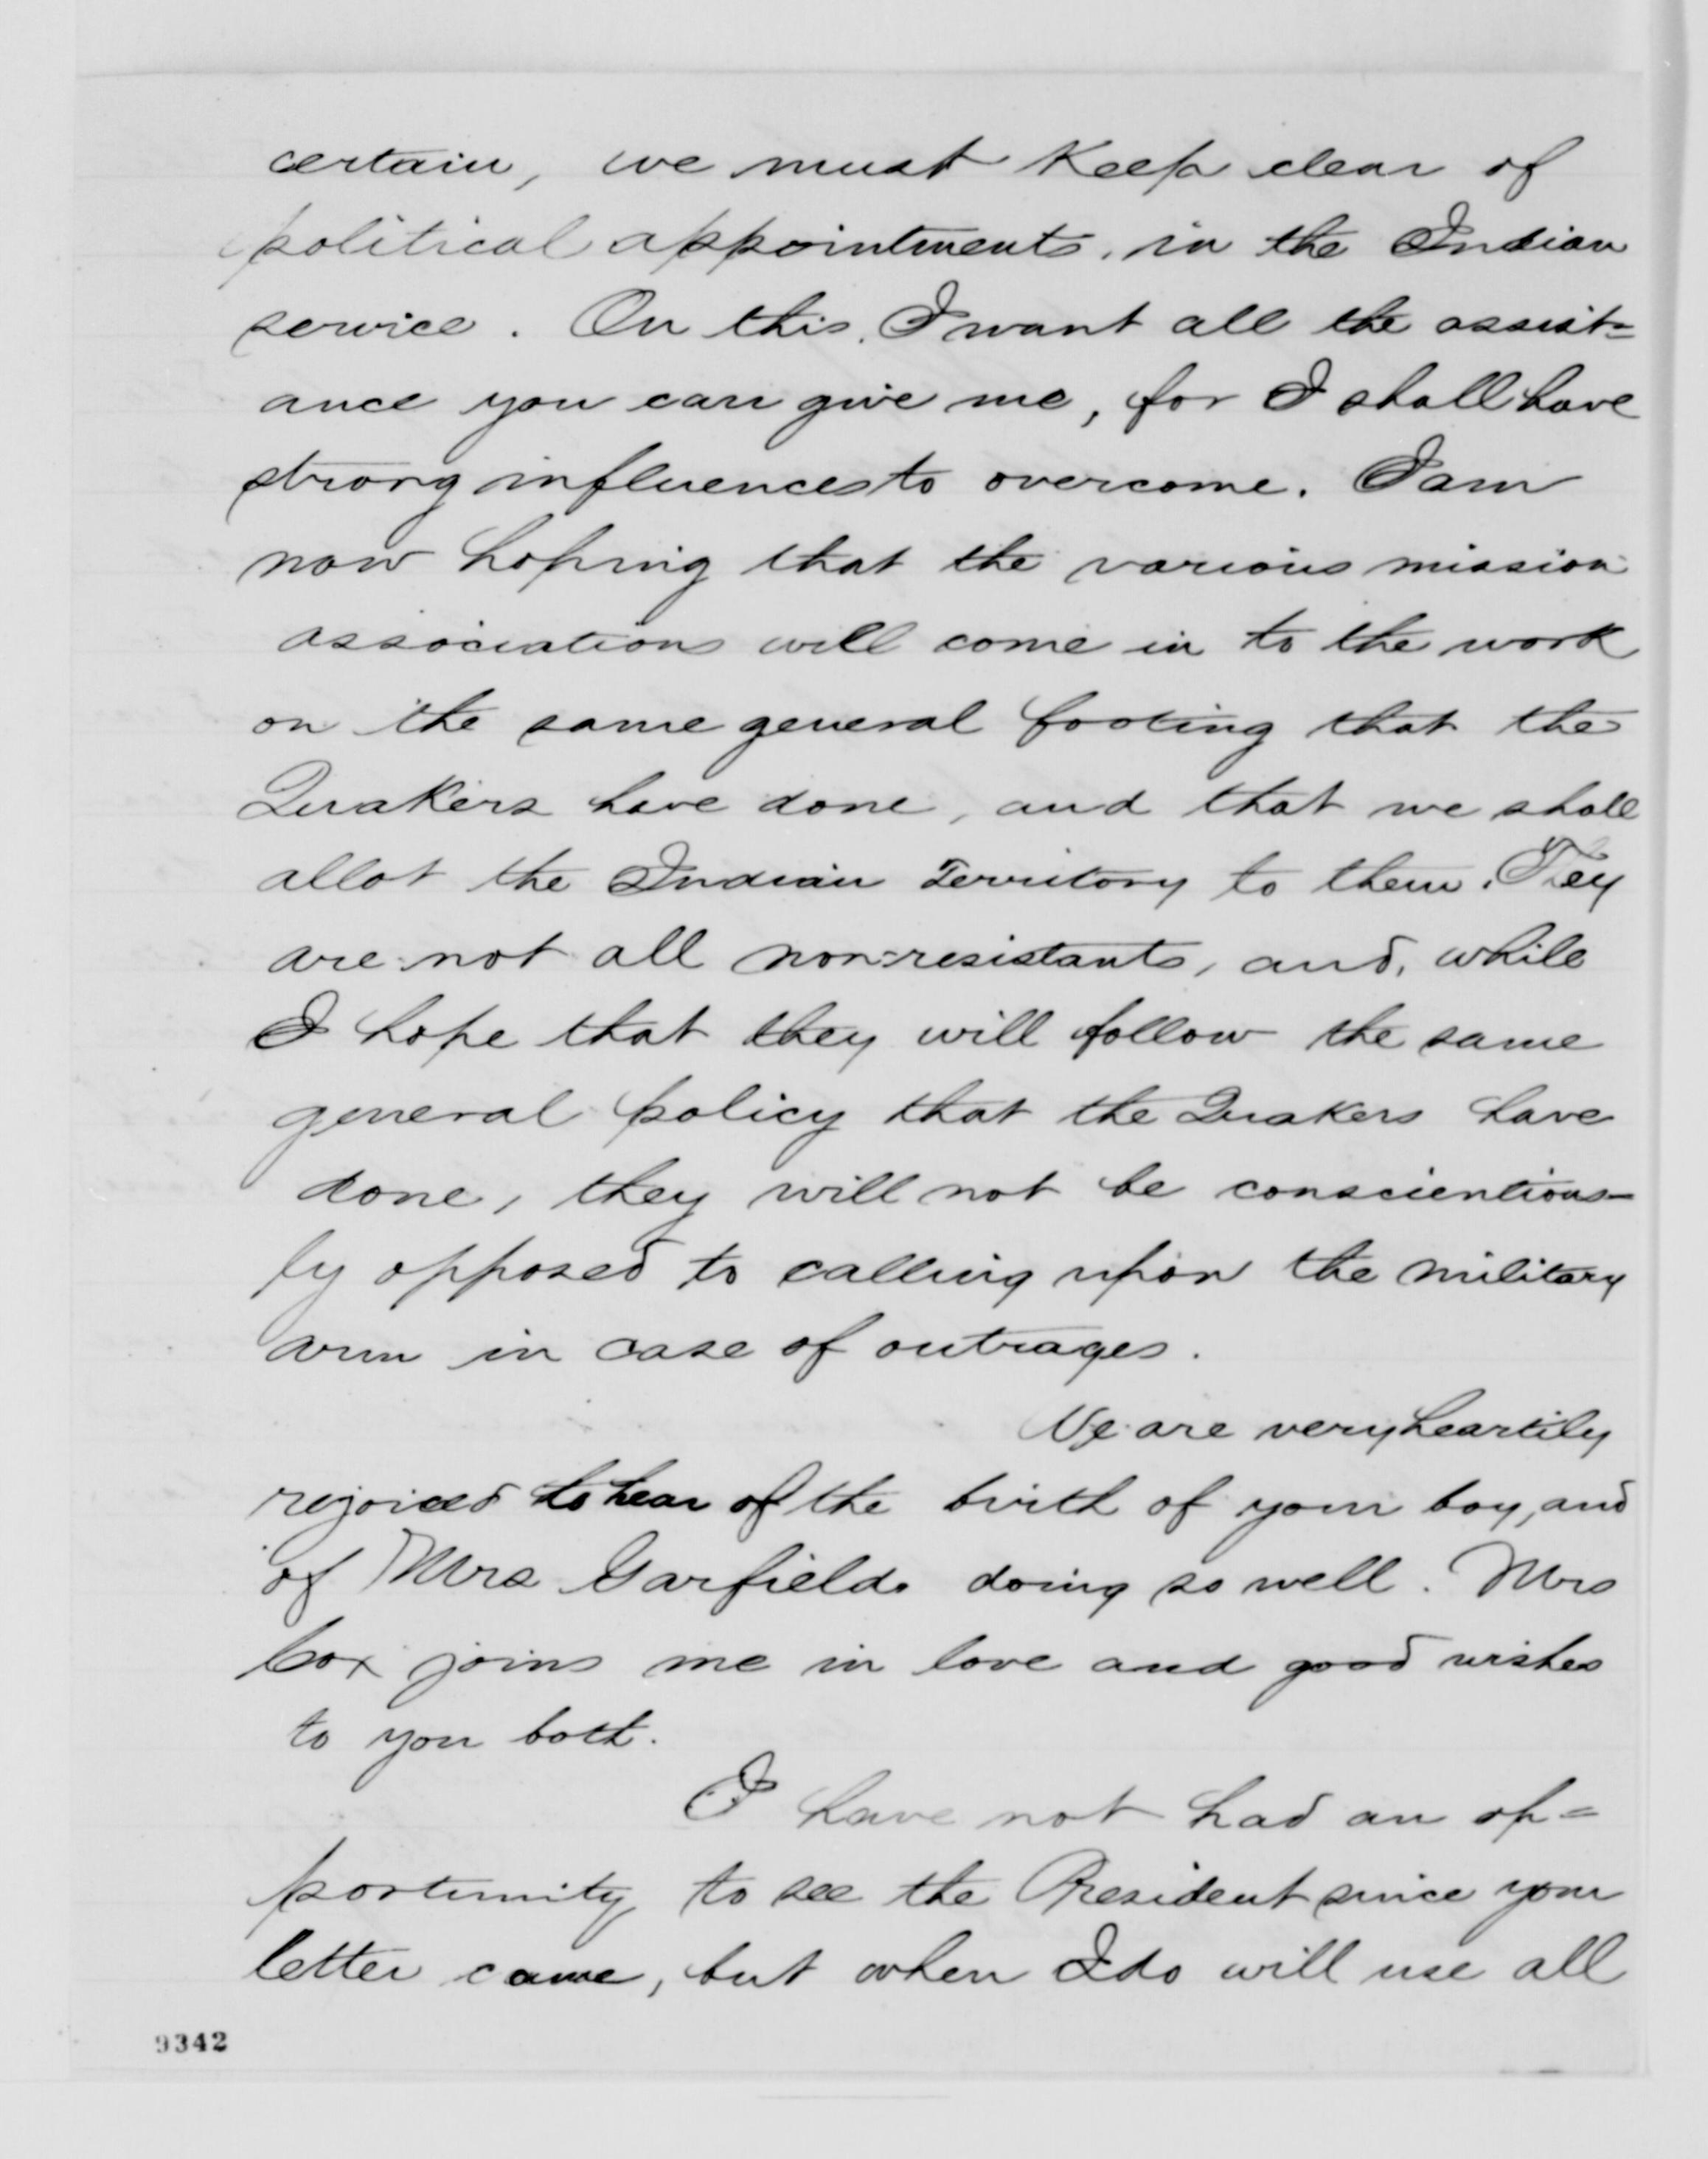 certain, we must keep clear of
political appointments, in the Indian
service. On this, I want all the assist=
ance you can give me, for I shall have
strong influences to overcome. I am
now hoping that the various mission
associations will come in to the work
on the same general footing that the
Quakers have done, and that we shall
allot the Indian Territory to them. They
are not all non-resistants, and, while
I hope that they will follow the same
general policy that the Quakers have
done, they will not be conscientious-
ly opposed to calling upon the military
arm in case of outrages.
We are very heartily
rejoiced to hear of the birth of your boy, and
of Mrs Garfields doing so well. Mrs
Cox joins me in love and good wishes
to you both.
I have not had an op=
portunity to see the President since your
letter came, but when I do will use all
9342